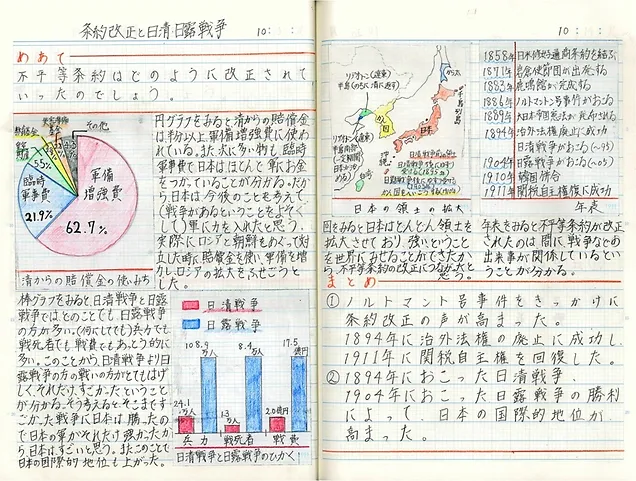 条約改正と日清日露戦争
10:
めあて
不平等条約はどのように改正されて
いったのでしょう。
その他
臨時
軍事費
21.9%
5.5%
軍備
増強費
62.7%
清からの賠償金の使いみち
円グラフをみると清からの賠償金
は半分以上、軍備増強費に使わ
れている。また、次に多い物も臨時
軍事費で日本はほとんど軍にお金
をつかっていることが分かる。だか
ら日本は今後のことも考えて
(戦争があるということをよそくし
て)軍に力を入れたと思う。
実際にロシアと朝鮮をめぐって対
立した時に賠償金を使い、軍備を増
力し、ロシアの拡大をふせごうと
した。
棒グラフをみると、日清戦争と日露
戦争ではどのことでも、日露戦争
の方が多い。(何にしても)兵力でも
戦死者でも戦費でも、あっとう的に
多い。このことから、日清戦争より日
露戦争の方の戦いの方がとてもはげ
しく、それだけ、すごかったということ
が分かる。そう考えると、そこまですご
かった戦争に日本は勝ったの
で日本の軍がそれだけ強かったか
ら日本はすごいと思う。またこのことで
日本の国際的地位も上がった。
日清戦争
日露戦争
108.9
万人
8.4万人
17.5
億円
24.1
万人
1.3
万人
2億円
兵力
戦死者
戦費
日清戦争と日露戦争のひかく
10:
リアオトン(遼東)
半島(のちに清に返す)
リアオトン(遼東)
半島南部
(一定期間
日本が借りる)
日本
台湾
日本の領土の拡大
1858年 日米修好通商条約を結ぶ
1871年 岩倉使節団が出発する
1883年 鹿鳴館が完成する
1886年 ノルマントン号事件がおこる
1889年 大日本帝国憲法が発布される
1894年 治外法権廃止に成功
日清戦争がおこる(~95)
1904年 日露戦争がおこる(~05)
1910年 韓国併合
1911年 関税自主権回復に成功
年表
図をみると日本はどんどん領土を
拡大させており、強いということ
を世界にみせることができたか
ら、不平等条約の改正につながったと
思う。
年表をみると不平等条約が改正
されたのは間に、戦争などの
出来事が関係しているという
ことが分かる。
まとめ
①ノルトマント号事件をきっかけに
条約改正の声が高まった。
1894年に治外法権の廃止に成功し、
1911年に関税自主権を回復した。
②1894年におこった日清戦争、
1904年におこった日露戦争の勝利
によって、日本の国際的地位が
高まった。